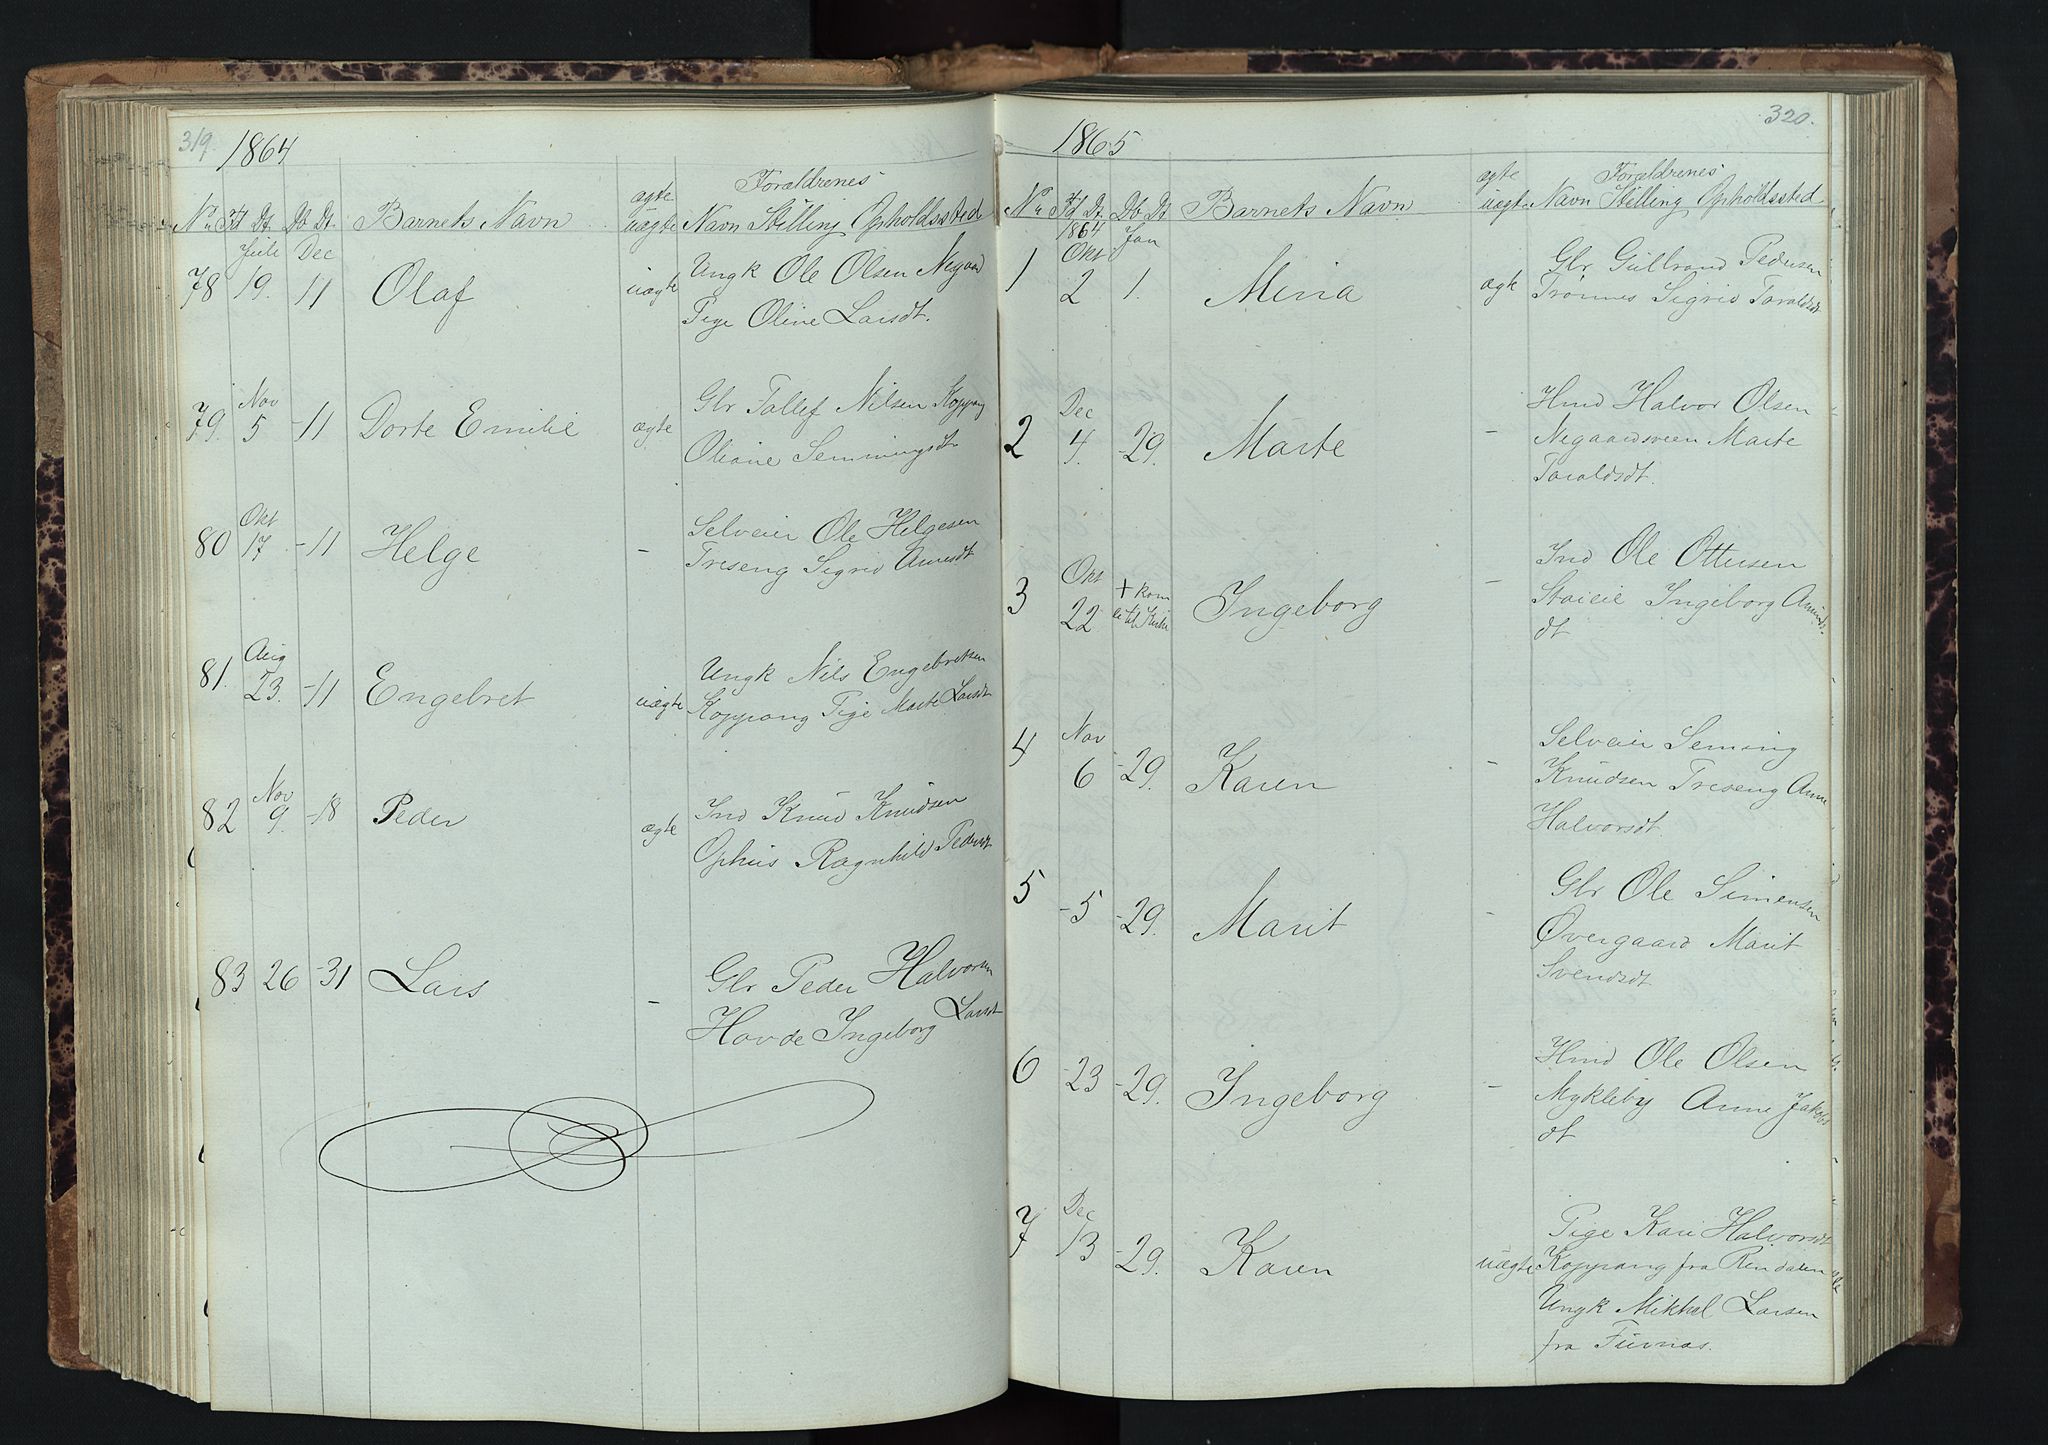 319.
1864
Forældrenes
ægte
No Fd Dt. Db Dt. Barnets Navn uægte Navn Stilling Opholdssted
Juli Dec
78 19. 11 Olaf uægte Ungk Ole Olsen Negaard
Pige Oline Larsdt.
Nov
79. 5 -11 Dorte Emilie ægte Glr Tollef Nilsen Koppang
Oliane Semmingsdt
Okt
80 17 -11 Helge - Selveier Ole Helgesen
Treseng Sigrid Arnesdt
Aug
81. 23. -11 Engebret uægte Ungk Nils Engebretsen
Koppang Pige Marte Larsdt
Nov
82 9. -18 Peder ægte Ind Knud Knudsen
Ophus Ragnhild Pedersdt
83 26 -31 Lars - Glr Peder Halvorsen
Hovde Ingeborg Larsdt
320.
1865
Forældrenes
ægte
No Fd Dt. Db Dt Barnets Navn uægte Navn Stilling Opholdssted
1864 Jan
Okt
1 2 1. Mina ægte Glr Gulbrand Pedersen
Trønnes Sigrid Taraldsdt
Dec
2 4. -29. Marte - Hmd Halvor Olsen
Negaardsveen Marte
Taraldsdt.
Okt
3 22 + kom ei til Kirke Ingeborg - Ind Ole Ottersen
Staieie Ingeborg Amunds-
dt
Nov
4 6 -29. Karen - Selveier Seming
Knudsen Treseng Anne
Halvorsdt.
5 -5 -29. Marit - Glr Ole Simensen
Øvergaard Marit
Svendsdt
6 -23 -29. Ingeborg - Hmd Ole Olsen
Mykleby Anne Jakobs
dt
Dec
7 13 -29. Karen uægte Pige Kari Halvorsdt
Koppang fra Rendalen
Ungk Mikkel Larsen
fra Furnæs.